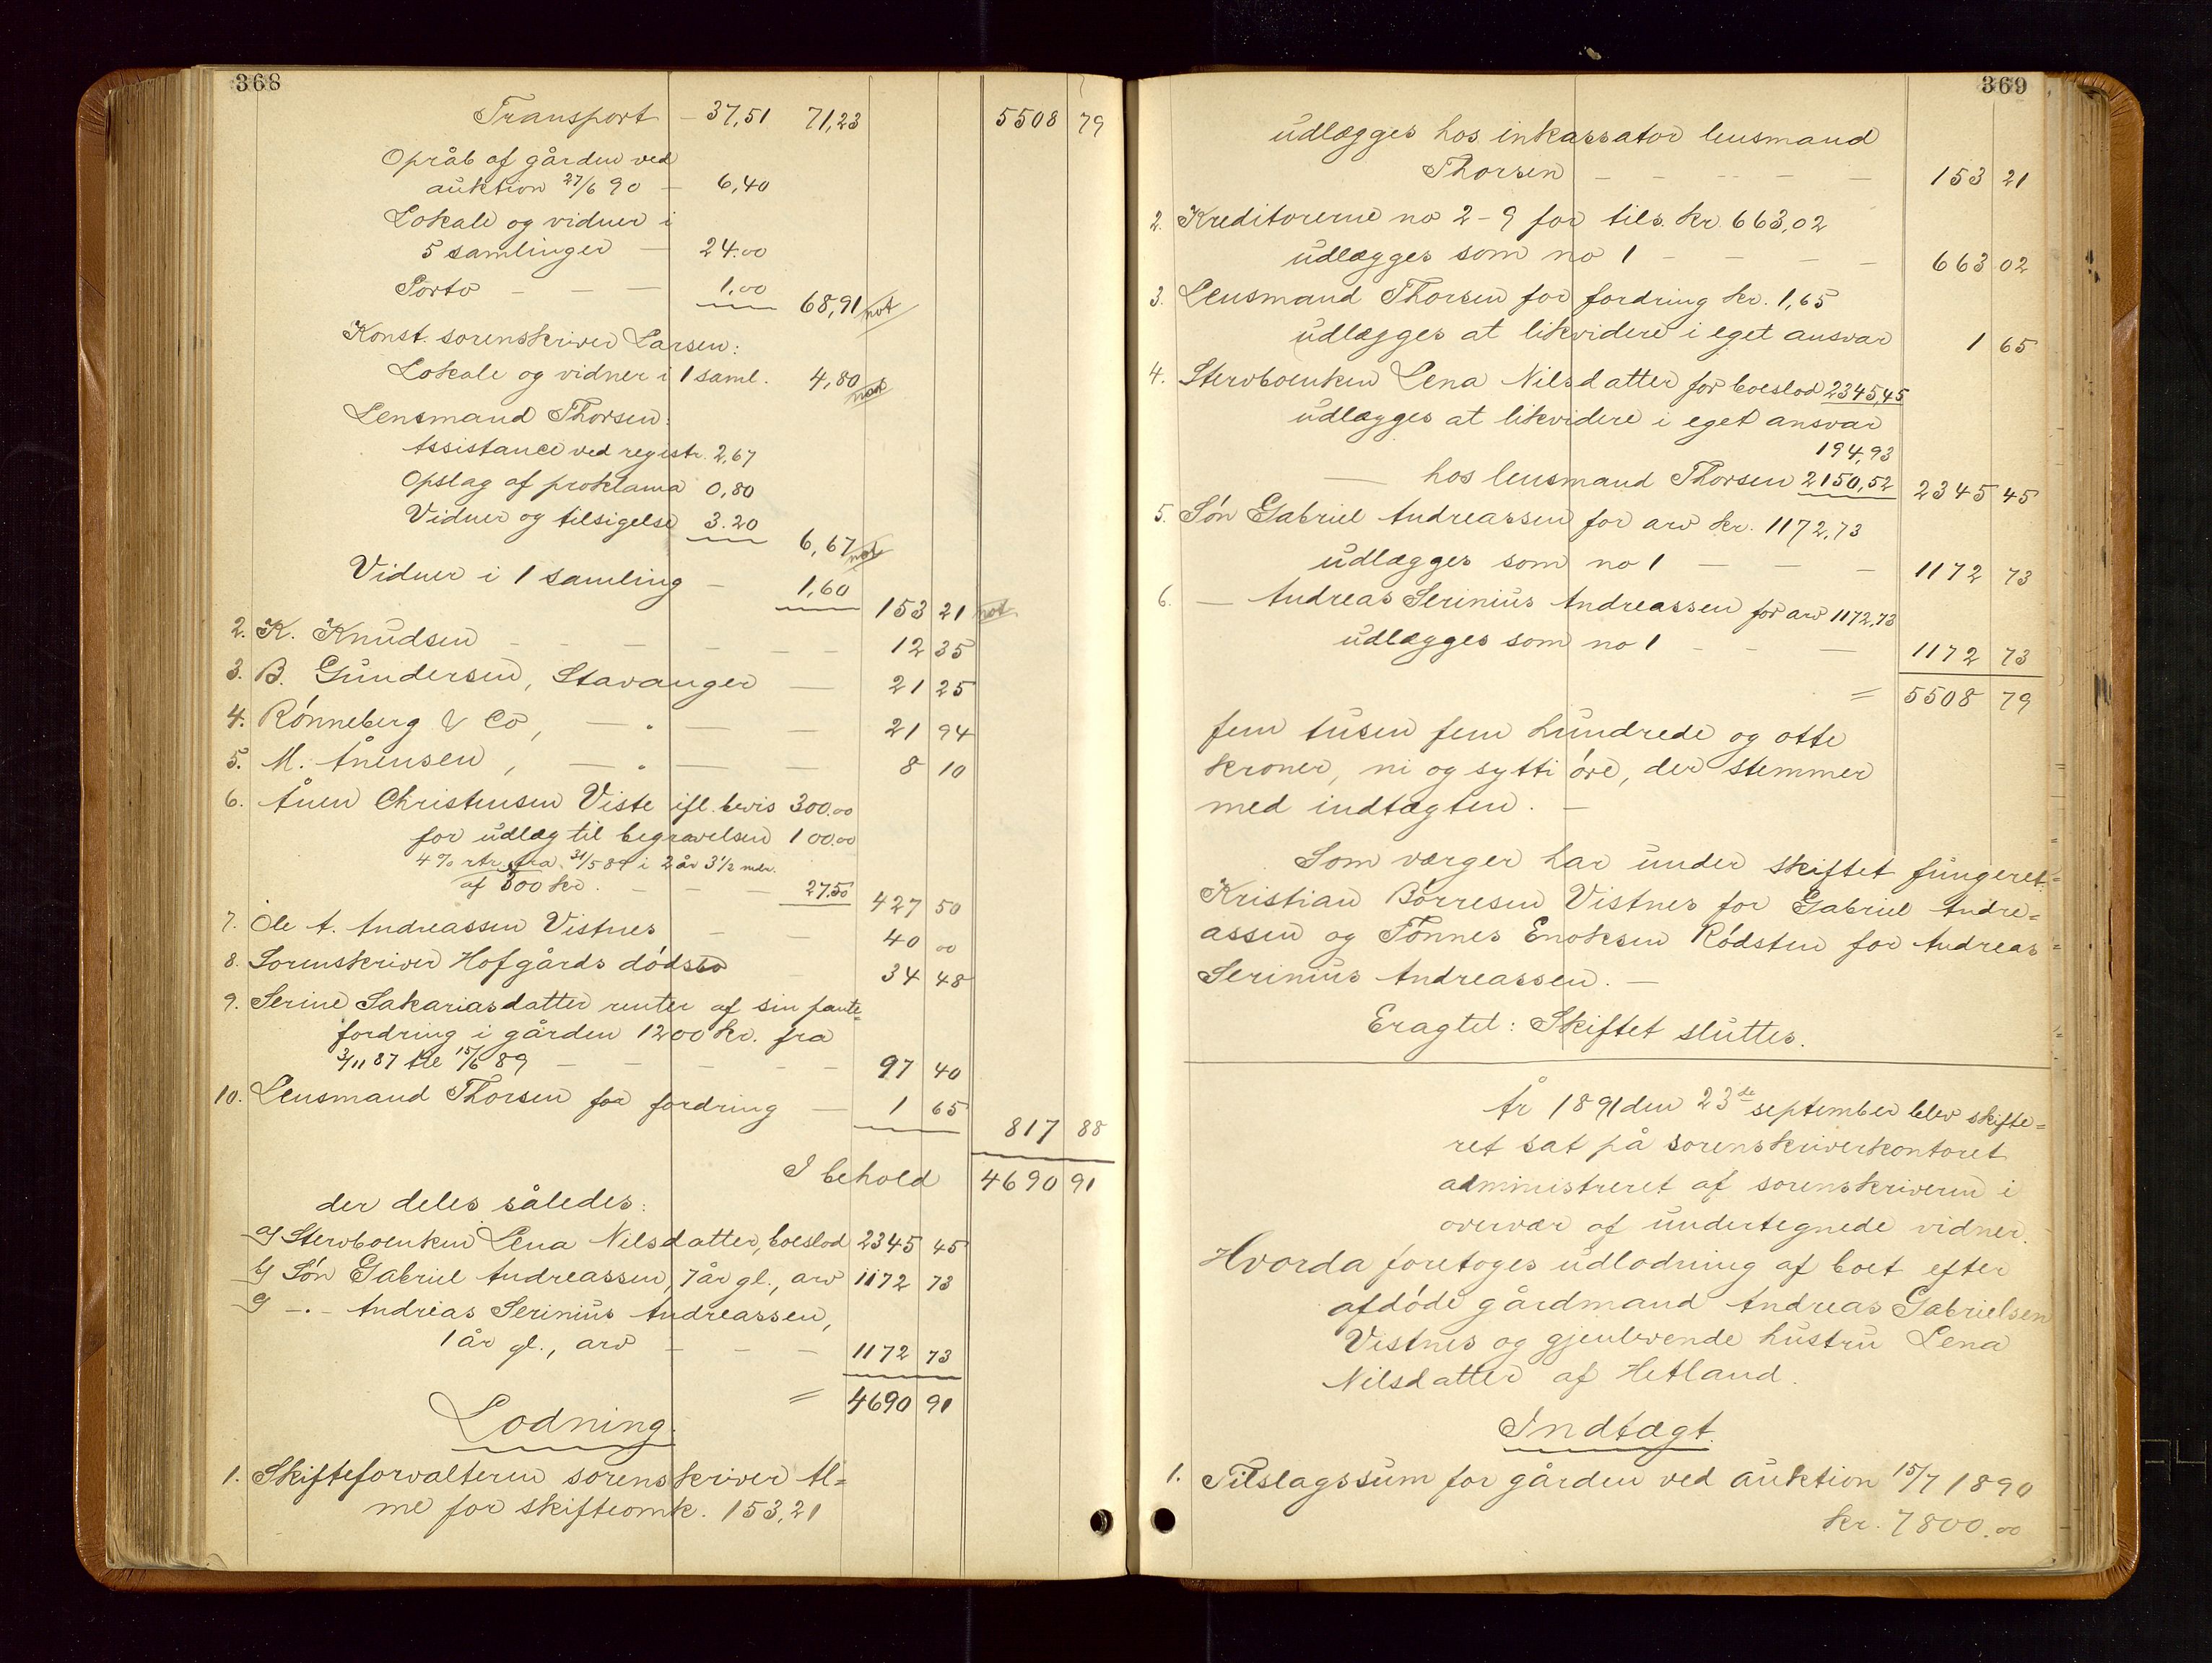 368
Transport - 37,51 71,23 5508 79
Opråb af gården ved
auktion 27/6 90 - 6,40
Lokale og vidner i
5 samlinger - 24.00
Porto - - - 1,00 68,91 not
Konst. sorenskriver Larsen:
Lokale og vidner i 1 saml. 4,80 not
Lensmand Thorsen:
Assistance ved registr. 2,67
Opslag af proklama 0,80
Vidner og tilsigelse 3.20 6,67 not
Vidner i 1 samling - 1,60 153 21 not
2. K. Knudsen - - - - - - 12 35
3. B. Gundersen, Stavanger - 21 25
4. Rönneberg & Co, - " - - 21 94
5. M. Ånensen, - " - - 8 10
6. Ånen Christensen Viste ifl. bevis 300.00
for udlæg til begravelsen 100.00
4% rtr. fra 31/5 89 i 2 år 3 1/2 mdr.
af 300 kr. - - - 27.50 427 50
7. Ole A. Andreassen Vistnes - - 40 00
8. Sorenskriver Hofgårds dødsbo - 34 48
9. Serine Sakariasdatter renter af sin pante=
fordring i gården 1200 kr. fra
3/11 87 til 15/6 89 - - - - - 97 40
10. Lensmand Thorsen for fordring - 1 65 817 88
I behold 4690 91
der deles således:
a) Stervboenken Lena Nilsdatter, boeslod 2345 45
b) Søn Gabriel Andreassen, 7 år gl., arv 1172 73
c) -"- Andreas Serinius Andreassen,
1 år gl., arv - - - 1172 73
= 4690 91
Lodning.
1. Skifteforvalteren sorenskriver Al=
me for skifteomk. 153,21
369
udlægges hos inkassator lensmand
Thorsen - - - - - 153 21
2. Kreditorerne no 2-9 for tils. kr. 663,02
udlægges som no 1 - - - - 663 02
3. Lensmand Thorsen for fordring kr. 1,65
udlægges at likvidere i eget ansvar 1 65
4. Stervboenken Lena Nilsdatter for boeslod 2345,45
udlægges at likvidere i eget ansvar
194,93
- hos lensmand Thorsen 2150,52 2345 45
5. Søn Gabriel Andreassen for arv kr. 1172,73
udlægges som no 1 - - - 1172 73
6. - Andreas Serinius Andreassen for arv 1172,73
udlægges som no 1 - - - 1172 73
= 5508 79
fem tusen fem hundrede og otte
kroner, ni og sytti øre, der stemmer
med indtægten. -
Som værger har under skiftet fungeret:
Kristian Börresen Vistnes for Gabriel Andre=
assen og Tönnes Enoksen Rödsten for Andreas
Serinius Andreassen. -
Eragtet: Skiftet sluttes.
År 1891 den 23de september blev skifte=
ret sat på sorenskriverkontoret
administreret af sorenskriveren i
overvær af undertegnede vidner.
Hvorda foretoges udlodning af boet efter
afdøde gårdmand Andreas Gabrielsen
Vistnes og gjenlevende hustru Lena
Nilsdatter af Hetland.
Indtægt.
1. Tilslagssum for gården ved auktion 15/7 1890
kr. 7800.00